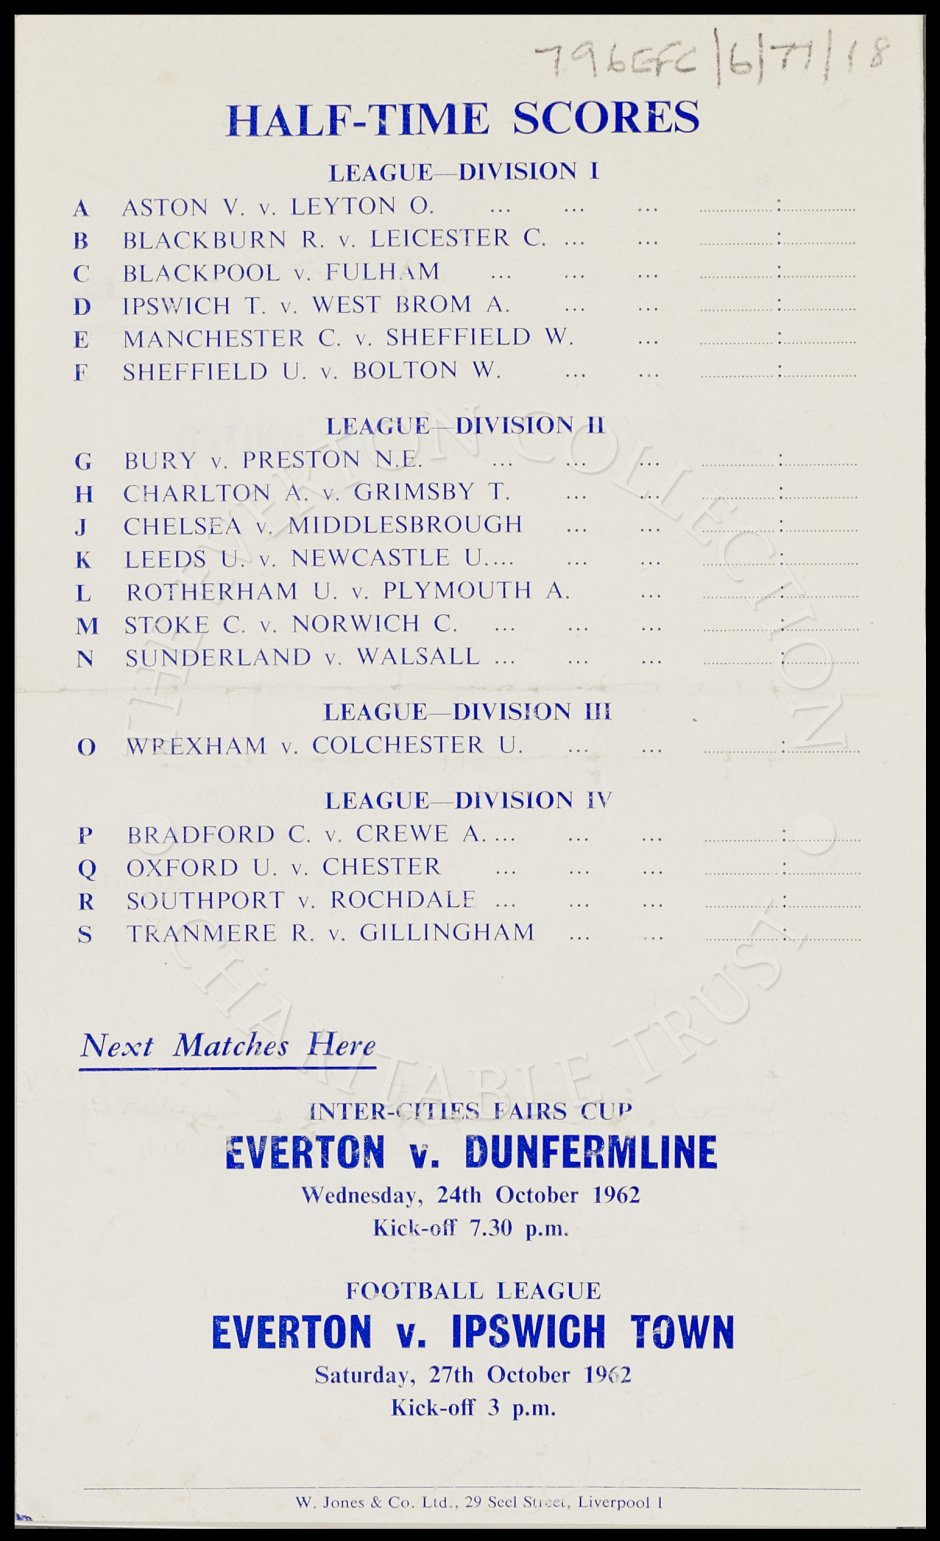 796EFC/6/77/18
HALF-TIME SCORES
LEAGUE—DIVISION I
A ASTON V. v. LEYTON O. ... ... ... :
B BLACKBURN R. v. LEICESTER C. ... ... :
C BLACKPOOL v. FULHAM ... ... ... :
D IPSWICH T. v. WEST BROM A. ... ... :
E MANCHESTER C. v. SHEFFIELD W. ... :
F SHEFFIELD U. v. BOLTON W. ... ... :
LEAGUE—DIVISION II
G BURY v. PRESTON N.E. ... ... ... :
H CHARLTON A. v. GRIMSBY T. ... ... :
J CHELSEA v. MIDDLESBROUGH ... ... :
K LEEDS U. v. NEWCASTLE U.... ... ... :
L ROTHERHAM U. v. PLYMOUTH A. ... :
M STOKE C. v. NORWICH C. ... ... ... :
N SUNDERLAND v. WALSALL ... ... ... :
LEAGUE—DIVISION III
O WREXHAM v. COLCHESTER U. ... ... :
LEAGUE—DIVISION IV
P BRADFORD C. v. CREWE A. ... ... ... :
Q OXFORD U. v. CHESTER ... ... ... :
R SOUTHPORT v. ROCHDALE ... ... ... :
S TRANMERE R. v. GILLINGHAM ... ... :
THE EVERTON COLLECTION
CHARITABLE TRUST
Next Matches Here
INTER-CITIES FAIRS CUP
EVERTON v. DUNFERMLINE
Wednesday, 24th October 1962
Kick-off 7.30 p.m.
FOOTBALL LEAGUE
EVERTON v. IPSWICH TOWN
Saturday, 27th October 1962
Kick-off 3 p.m.
W. Jones & Co. Ltd., 29 Seel Street, Liverpool 1